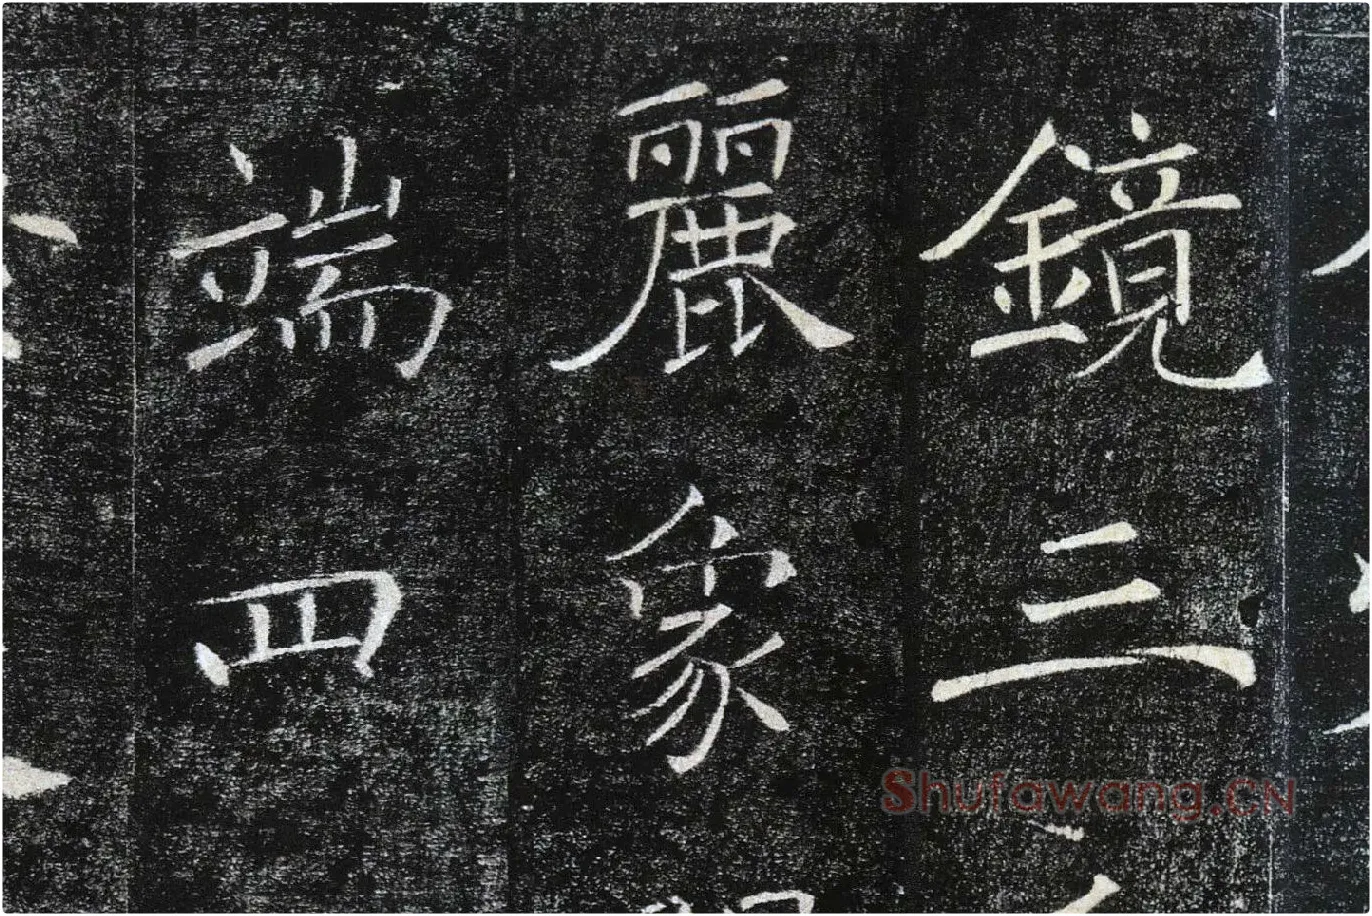 鏡三
麗象
端四
Shufawang.CN